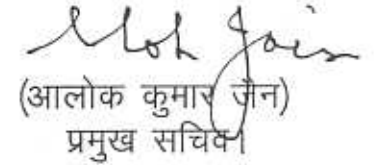 Alok Jain
(आलोक कुमार जैन)
प्रमुख सचिव।